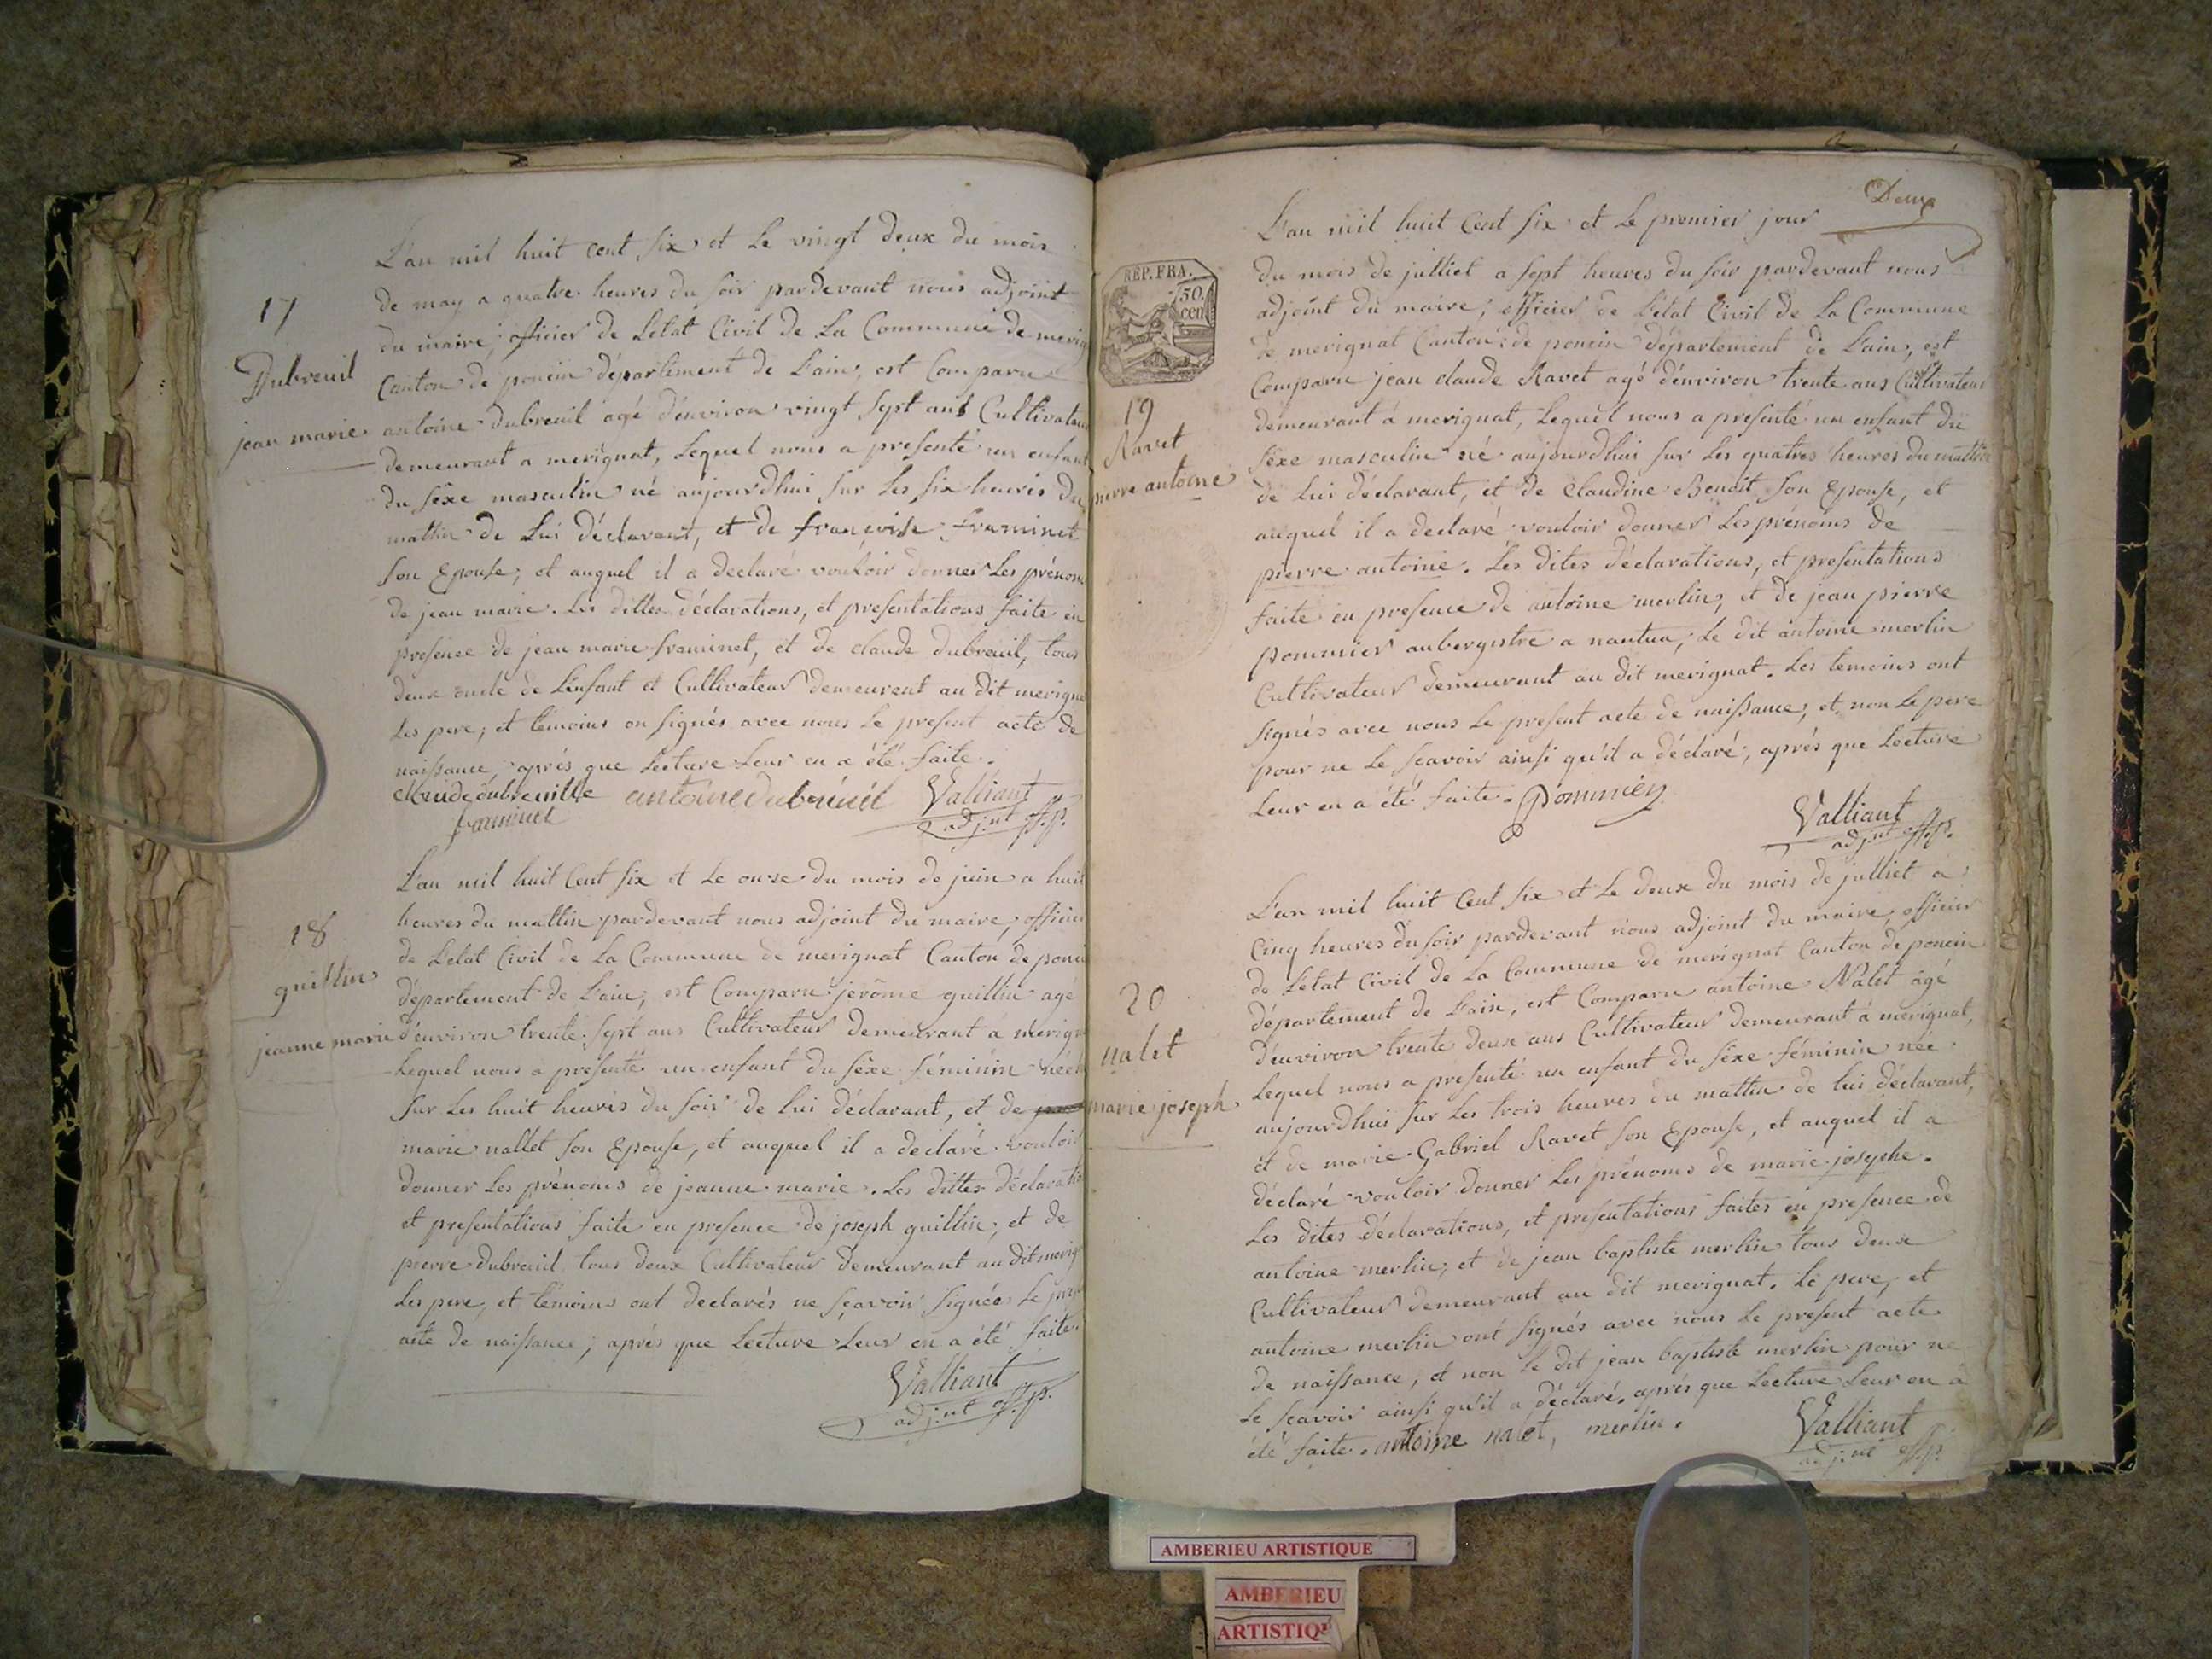 L'an mil huit cent six et le vingt deux du mois
de may a quatre heures du soir pardevant nous adjoint
du maire, officier de Letat Civil de La Commune de merig
Canton de poncin département de L'ain, est Comparu
antoine dubreuil agé d'environ vingt sept ans Cultivateu
demeurant a merignat, Lequel nous a presenté un enfant
du sexe masculin né aujourdhui sur Les six heures du
mattin de Lui déclarant, et de françoise framinet
son Epouse, et auquel il a declaré vouloir donner Les prénom
de jean marie. Les dittes déclarations, et presentations faite en
presence de jean marie framinet, et de claude dubreuil, tous
deux oncle de L'enfant et Cultivateur demeurent au dit merigna
Les pere, et témoins on signés avec nous Le present acte de
naissance, aprés que Lecture Leur en a été faite.
Claude dubreuille antoine dubreuil Valliant
framinet adj.nt off.p.
17
Dubreuil
jean marie
L'an mil huit Cent six et Le onze du mois de juin a huit
heures du mattin pardevant nous adjoint du maire, officier
de Letat Civil de La Commune de merignat Canton de ponci
département de L'ain, est Comparu jerôme guillin agé
d'environ trente sept ans Cultivateur demeurant a merign
Lequel nous a presenté un enfant du sexe féminin née
sur Les huit heures du soir de lui déclarant, et de
marie nallet son Epouse, et auquel il a declaré vouloir
donner Les prénoms de jeanne marie. Les dittes déclaratio
et presentations faite en presence de joseph guillin, et de
pierre dubreuil tous deux Cultivateur demeurant au dit merig
Les pere, et témoins ont declarés ne sçavoir signées Le pres
acte de naissance, aprés que Lecture Leur en a été faite.
Valliant
adj.nt off.p.
18
guillin
jeanne marie
Deux
L'an mil huit Cent six et Le premier jour
du mois de julliet a sept heures du soir pardevant nous
adjoint du maire, officier de L'état Civil de La Commune
de merignat Canton de poncin département de L'ain, est
Comparu jean claude Ravet agé d'environ trente ans Cultivateur
demeurant á merignat, Lequel nous a presenté un enfant du
sexe masculin né aujourdhui sur Les quatres heures du mattin
de Lui déclarant, et de Claudine Benoit son Epouse, et
auquel il a declaré vouloir donner Les prénoms de
pierre antoine. Les dites déclarations, et presentations
faite en presence de antoine merlin, et de jean pierre
pommier aubergistre a nantua, Le dit antoine merlin
Cultivateur demeurant au dit merignat. Les temoins ont
signés avec nous Le present acte de naissance, et non Le pere
pour ne Le sçavoir ainsi qu'il a déclaré, aprés que Lecture
Leur en a été faite. Pommier
Valliant
adj.nt off.p.
RÉP. FRA.
50.
cen
19
Ravet
pierre antoine
L'an mil huit Cent six et Le deux du mois de julliet a
Cinq heures du soir pardevant nous adjoint du maire, officier
de L'état Civil de La Commune de merignat Canton de poncin
département de L'ain, est Comparu antoine Nalet agé
d'environ trente deux ans Cultivateur demeurant á merignat,
Lequel nous a presenté un enfant du sexe féminin née
aujourdhui sur Les trois heures du mattin de lui déclarant,
et de marie Gabriel Ravet son Epouse, et auquel il a
déclaré vouloir donner Les prénoms de marie josephe.
Les dites déclarations, et presentations faites en presence de
antoine merlin, et de jean baptiste merlin tous deux
Cultivateur demeurant au dit merignat. Le pere, et
antoine merlin ont signés avec nous Le present acte
de naissance, et non Le dit jean baptiste merlin pour ne
Le sçavoir ainsi qu'il a déclaré, aprés que Lecture Leur en a
été faite. antoine nalet, merlin.
Valliant
adj.nt off.p.
20
nalet
marie joseph
AMBERIEU ARTISTIQUE
AMBERIEU
ARTISTIQ